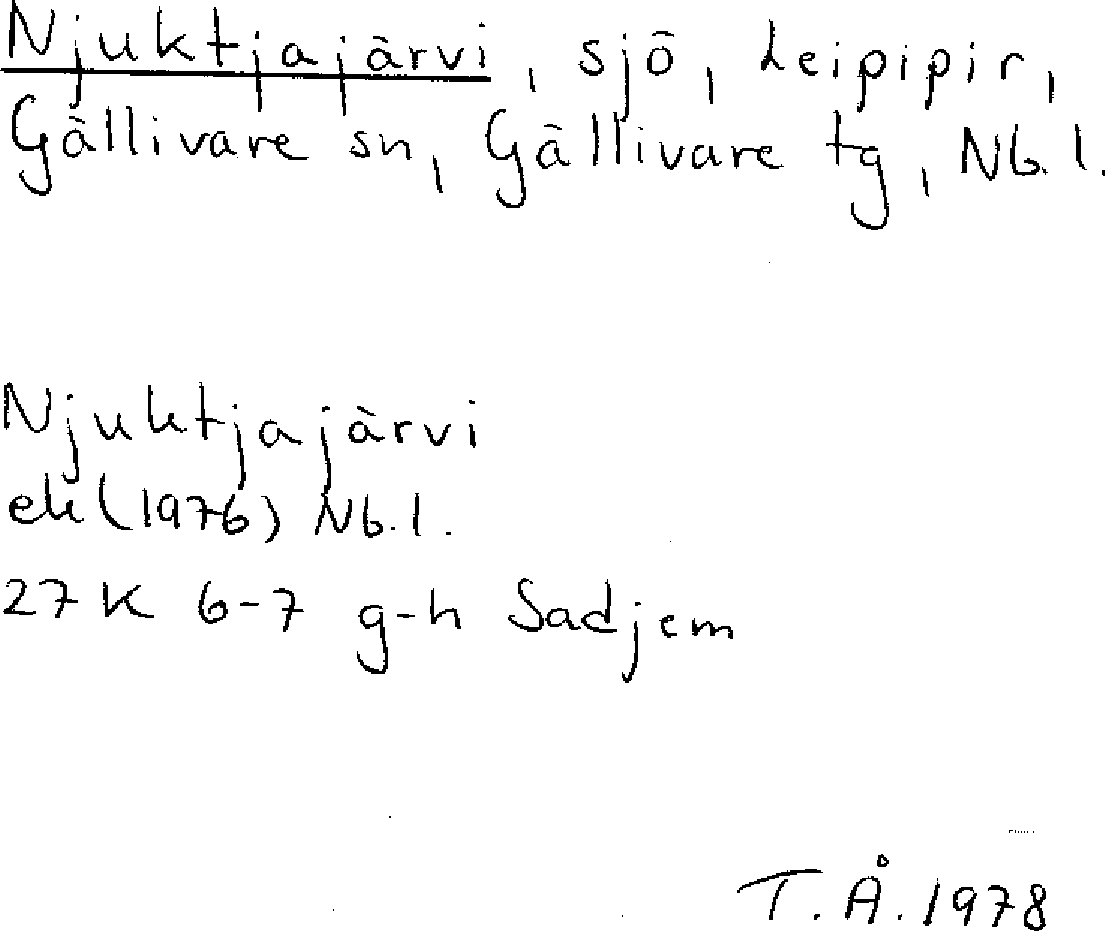 Njuktjajärvi, sjö, Leipipir,
Gällivare sn, Gällivare tg, Nb. l.
Njuktjajärvi
ek (1976) Nb. l.
27 K 6-7 g-h Sadjem
T. Å. 1978